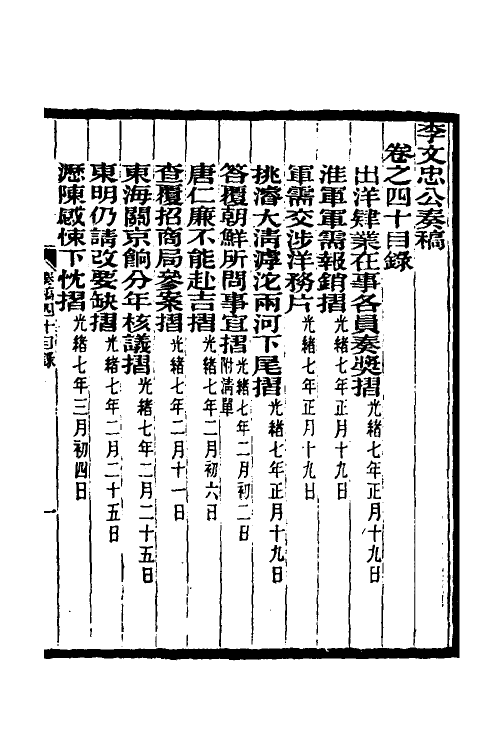 李文忠公奏稿
卷之四十目錄
出洋肄業在事各員奏獎摺光緒七年正月十九日
淮軍軍需報銷摺光緒七年正月十九日
軍需交涉洋務片光緒七年正月十九日
挑濬大清滹沱兩河下尾摺光緒七年正月十九日
答覆朝鮮所問事宜摺附清單光緒七年二月初二日
唐仁廉不能赴吉摺光緒七年二月初六日
查覆招商局參案摺光緒七年二月十一日
東海關京餉分年核議摺光緒七年二月二十五日
東明仍請改要缺摺光緒七年二月二十五日
瀝陳感悚下忱摺光緒七年三月初四日
奏稿四十目錄
一